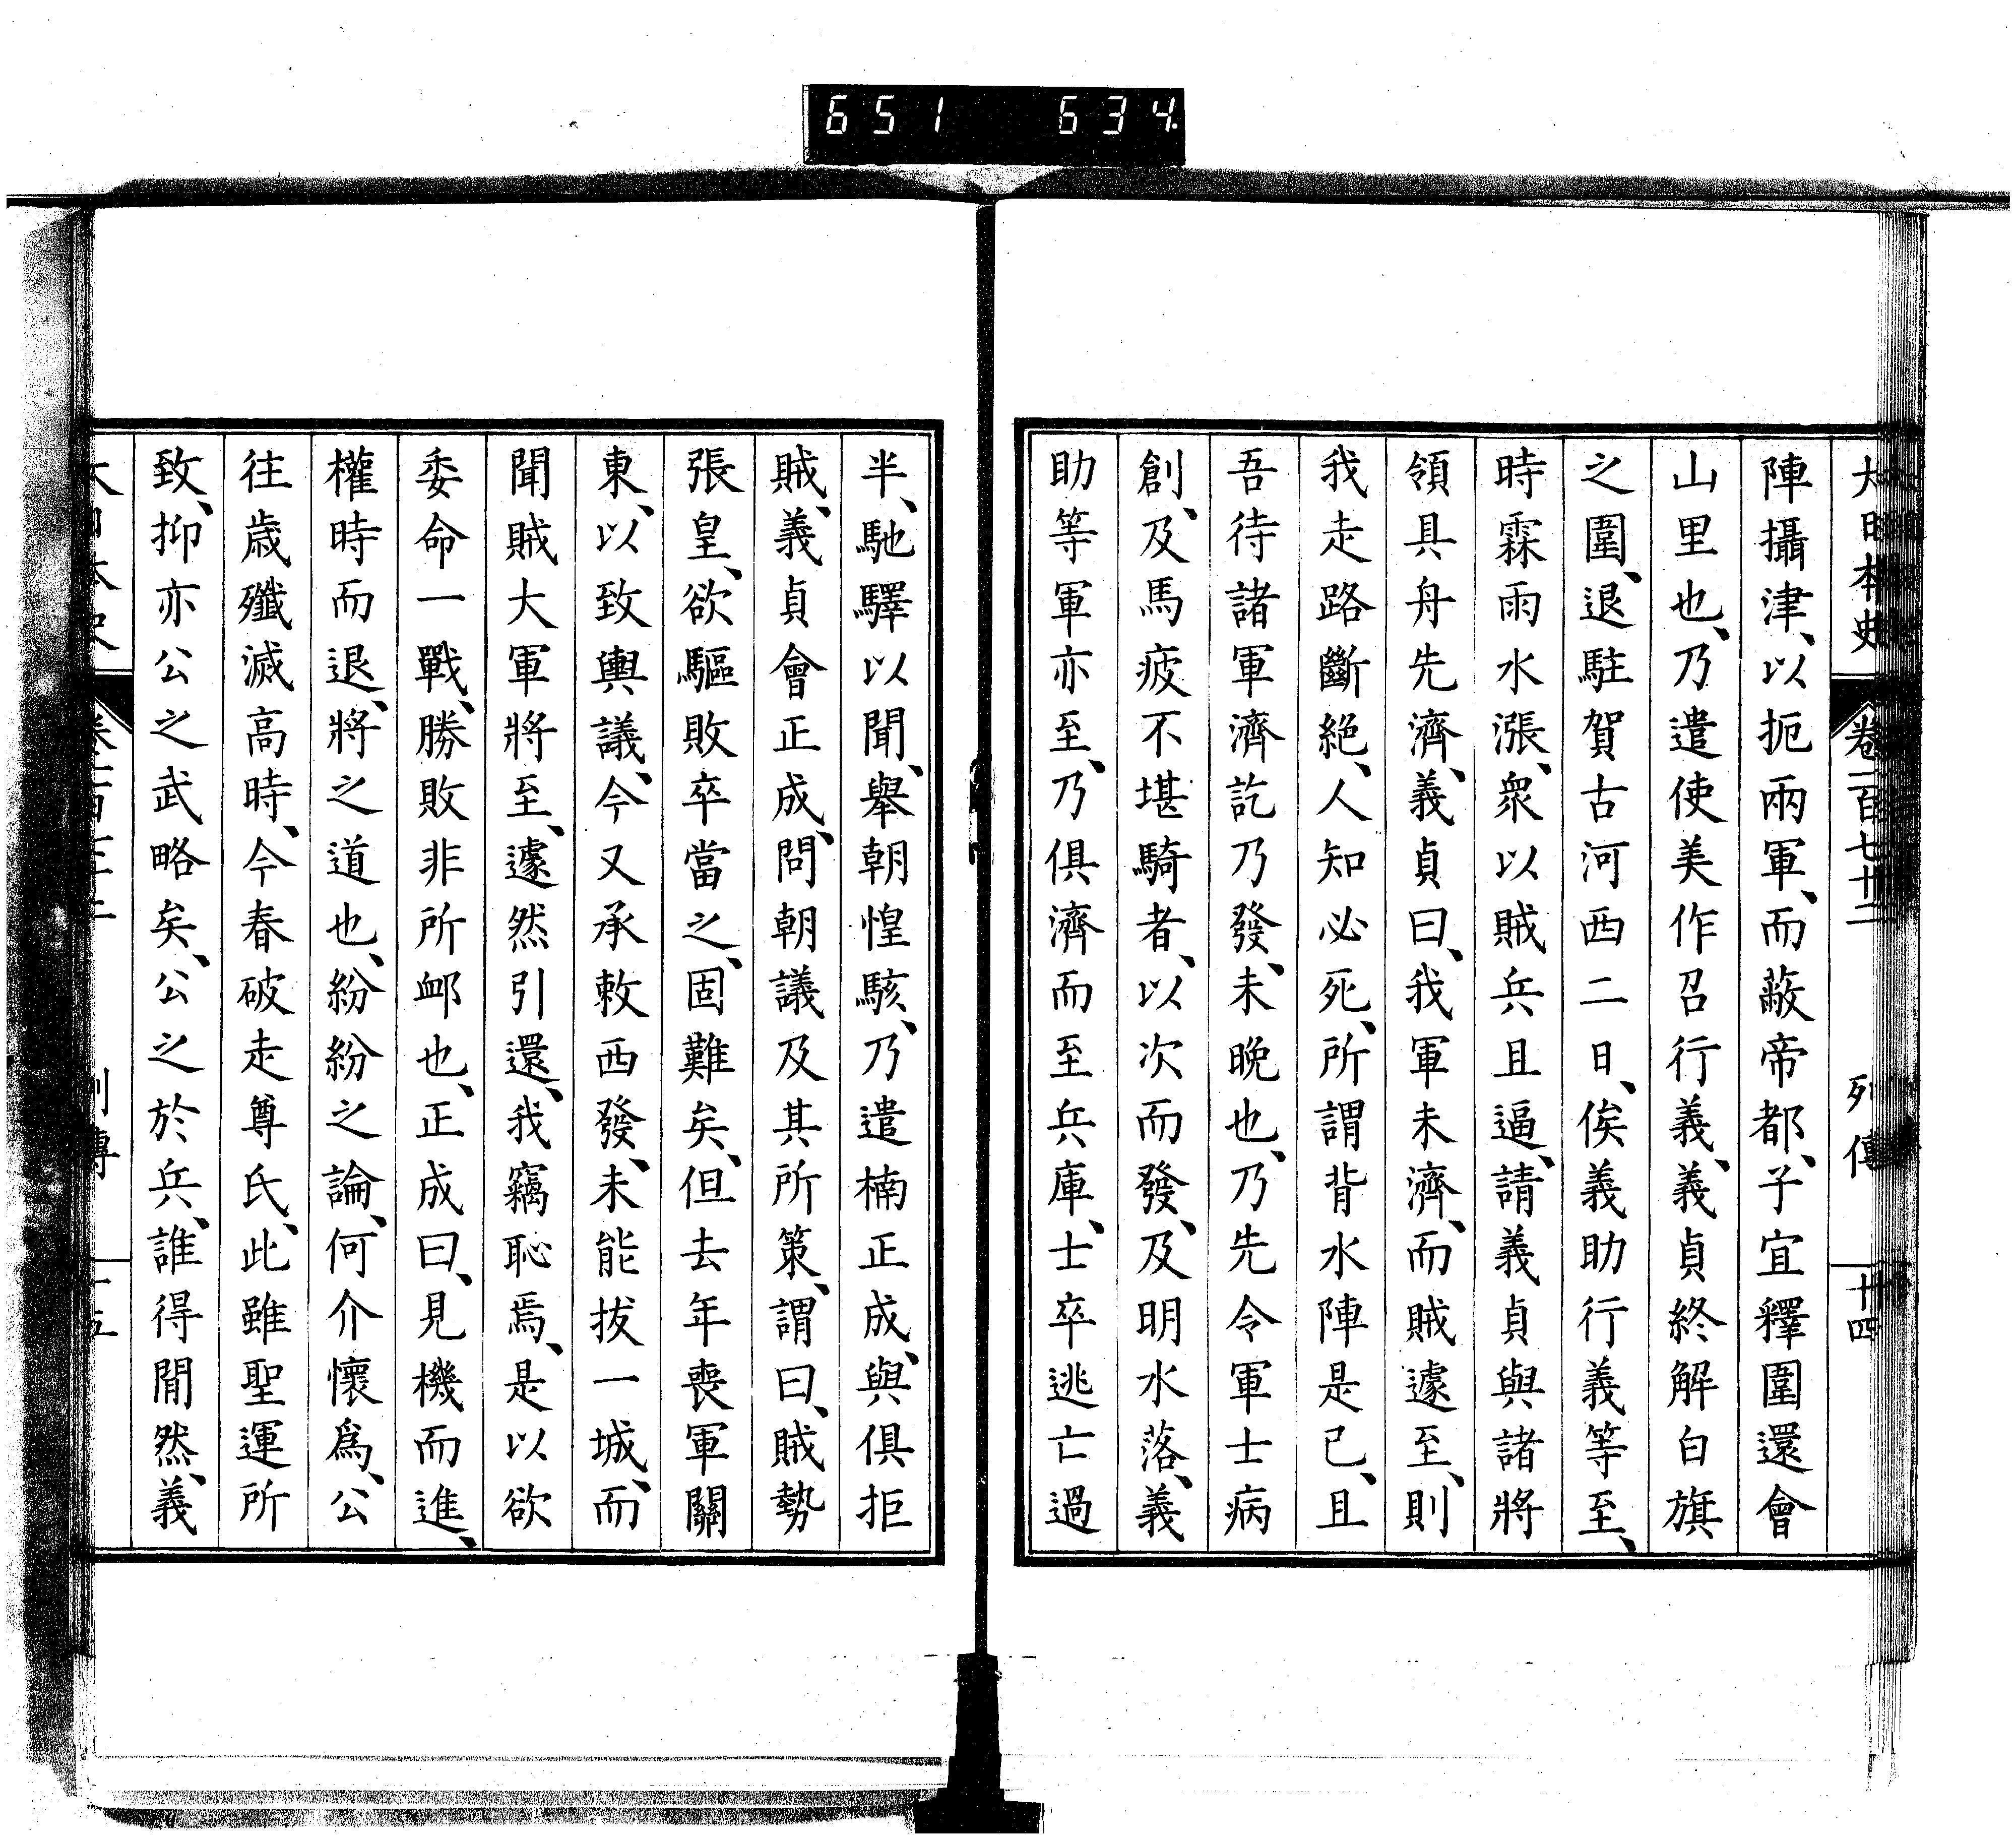 651 634
大日本史 卷一百七十二 列傳 十四
陣攝津、以扼兩軍、而蔽帝都、子宜釋圍還會
山里也、乃遣使美作召行義、義貞終解白旗
之圍、退駐賀古河西二日、俟義助行義等至、
時霖雨水漲、衆以賊兵且逼、請義貞與諸將
領具舟先濟、義貞曰、我軍未濟、而賊遽至、則
我走路斷絶、人知必死、所謂背水陣是已、且
吾待諸軍濟訖乃發、未晩也、乃先令軍士病
創、及馬疲不堪騎者、以次而發、及明水落、義
助等軍亦至、乃俱濟而至兵庫、士卒逃亡過
半、馳驛以聞、舉朝惶駭、乃遣楠正成、與俱拒
賊、義貞會正成、問朝議及其所策、謂曰、賊勢
張皇、欲驅敗卒當之、固難矣、但去年喪軍關
東、以致輿議、今又承敕西發、未能拔一城、而
聞賊大軍將至、遽然引還、我竊恥焉、是以欲
委命一戰、勝敗非所衈也、正成曰、見機而進、
權時而退、將之道也、紛紛之論、何介懷爲、公
往歳殲滅高時、今春破走尊氏、此雖聖運所
致、抑亦公之武略矣、公之於兵、誰得閒然、義